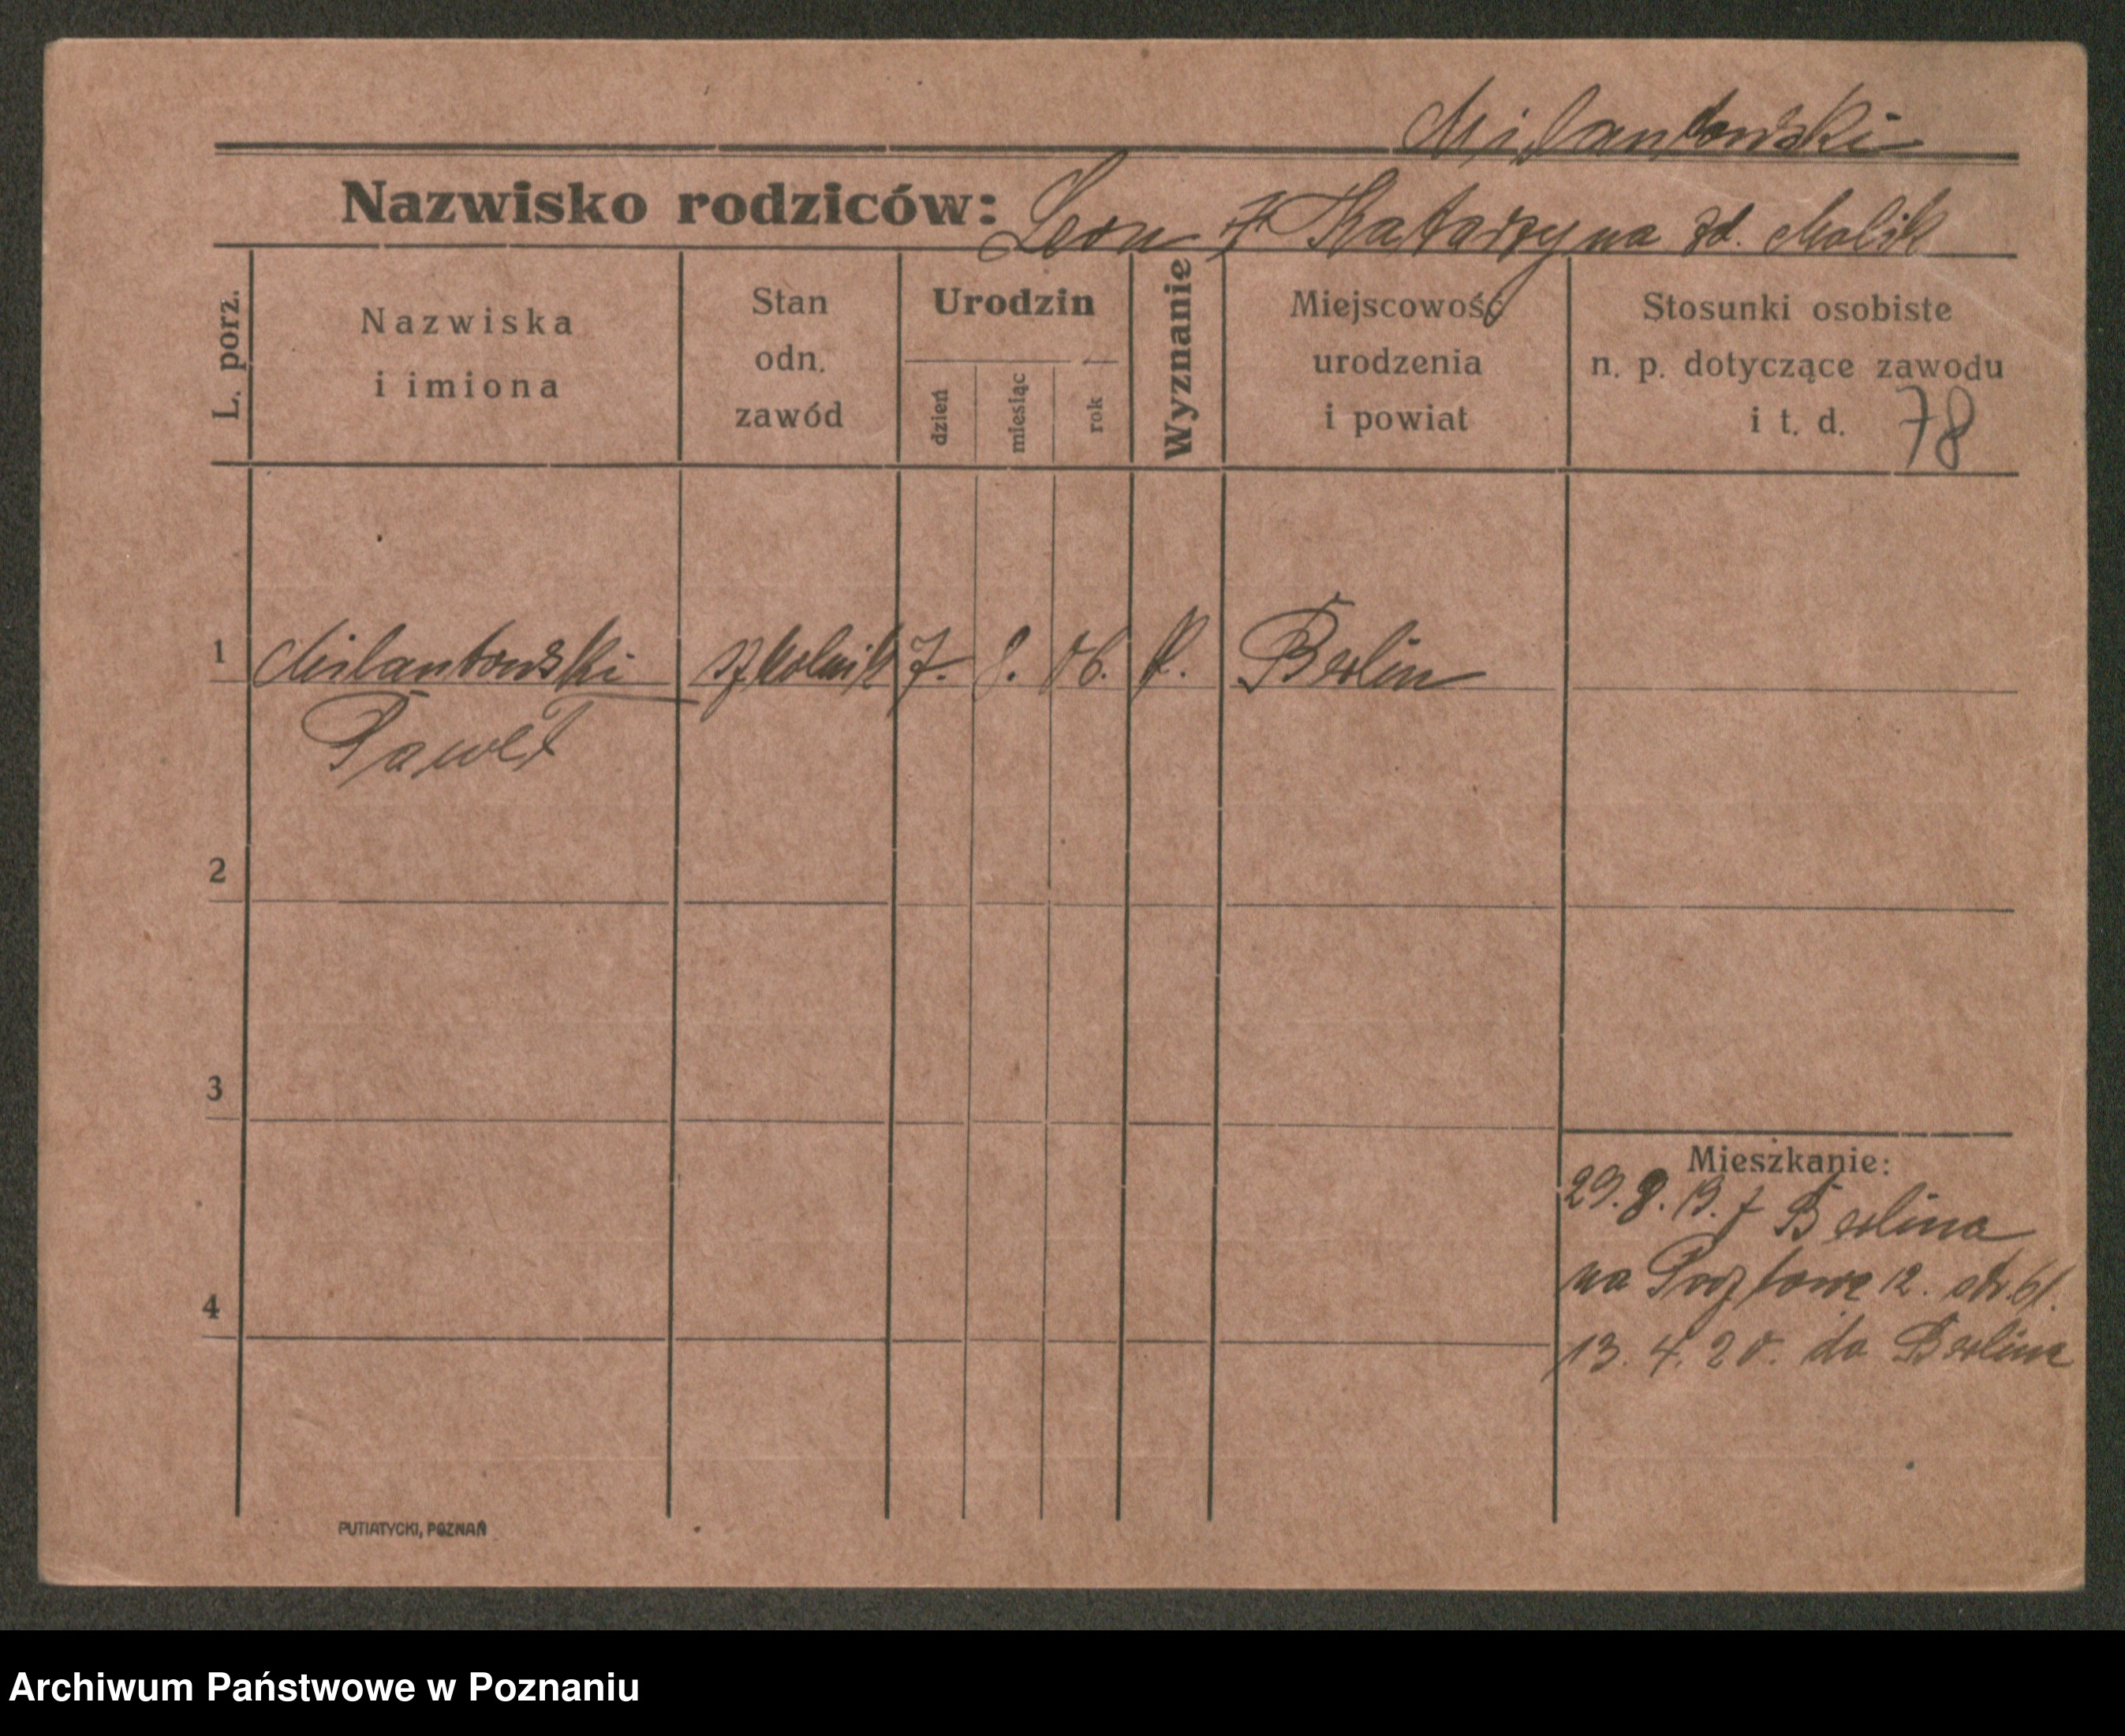 Milantowski
Nazwisko rodziców: Leon i Katarzyna zd. Malik
L. porz.
Nazwiska
i imiona
Stan
odn.
zawód
Urodzin
dzień
miesiąc
rok
Wyznanie
Miejscowość
urodzenia
i powiat
Stosunki osobiste
n. p. dotyczące zawodu
i t. d. 78
1 Milantowski szkolnik 7. 8. 06. k. Berlin
Paweł
2
3
4
Mieszkanie:
29. 8. 19. z Berlina
na 12. str. 61.
13. 4. 20. do Berlina
PUTIATYCKI, POZNAŃ
Archiwum Państwowe w Poznaniu